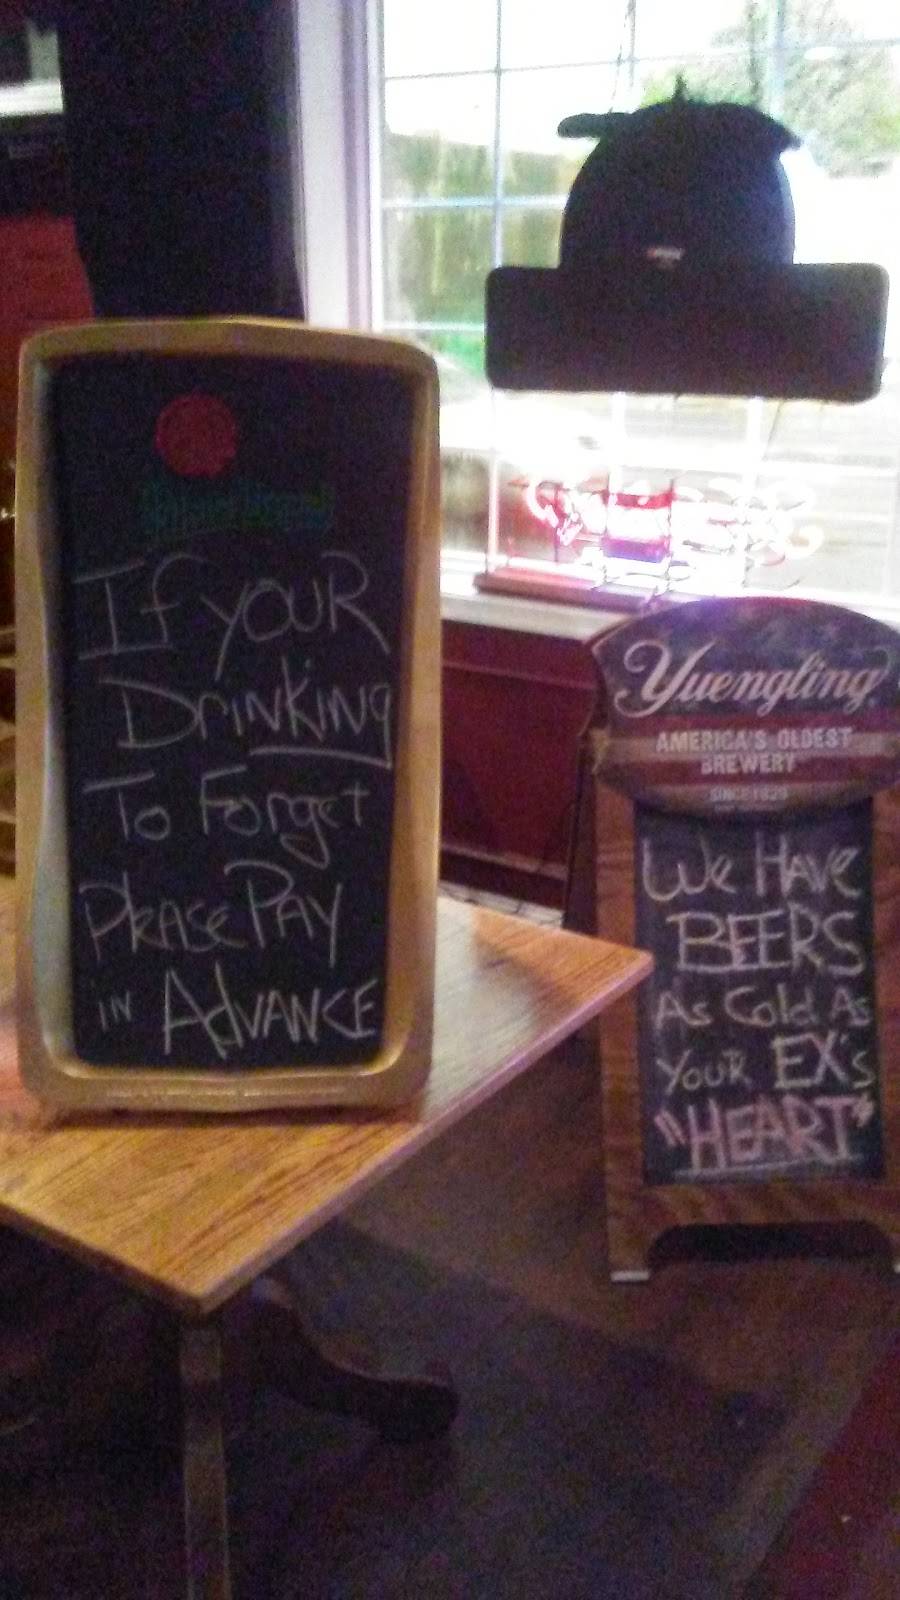 If YOUR
DrinKing
To Forget
Please PAY
in AdVANCE
Yuengling
AMERICA'S OLDEST
BREWERY
SINCE 1829
We Have
BEERS
As Cold As
YouR EX's
"HEART"